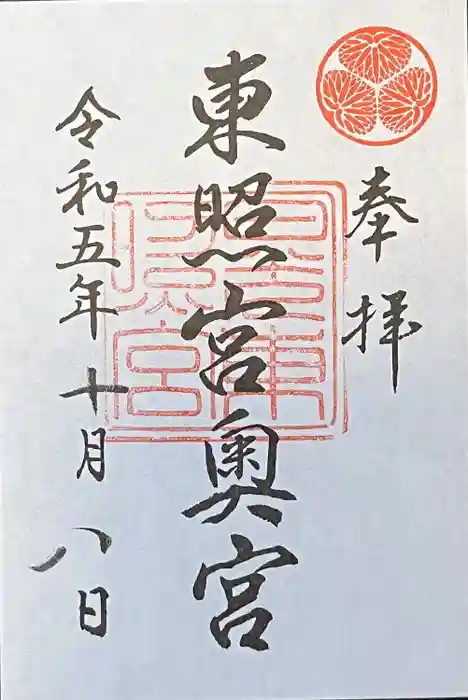 奉拝
東照宮奥宮
令和五年十月八日